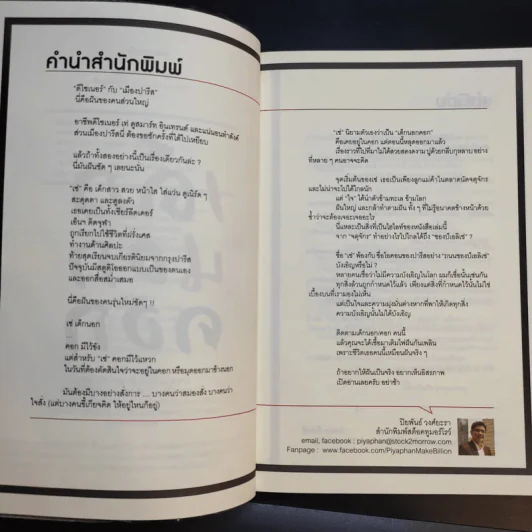 คำนำสำนักพิมพ์
"ดีไซเนอร์" กับ "เมืองปารีส"
นี่คือฝันของคนส่วนใหญ่
อาชีพดีไซเนอร์ เท่ ดูสมาร์ท อินเทรนด์ และแน่นอนทำตังค์
ส่วนเมืองปารีสนี่ ต้องขอซักครั้งที่ได้ไปเหยียบ
แล้วถ้าทั้งสองอย่างนี้เป็นเรื่องเดียวกันล่ะ ?
นี่มันฝันชัด ๆ เลยนะนั่น
"เช่" คือ เด็กสาว สวย หน้าใส ใส่แว่น ดูเนิร์ด ๆ
สะดุดตา และดูลงตัว
เธอเคยเป็นทั้งเชียร์ลีดเดอร์
เอ็นฯ ติดจุฬา
ถูกเรียกไปใช้ชีวิตที่ฝรั่งเศส
ทำงานด้านศิลปะ
ท้ายสุดเรียนจบเกียรตินิยมจากกรุงปารีส
ปัจจุบันมีสตูดิโอออกแบบเป็นของตนเอง
และออกสื่อสม่ำเสมอ
นี่คือฝันของคนรุ่นใหม่ชัดๆ !!
เช่ เด็กนอก
คอก มีไว้ขัง
แต่สำหรับ "เช่" คอกมีไว้แหวก
ในวันที่ต้องตัดสินใจว่าจะอยู่ในคอก หรือมุดออกมาข้างนอก
มันต้องมีบางอย่างสั่งการ ... บางคนว่าสมองสั่ง บางคนว่า
ใจสั่ง (แต่บางคนขี้เกียจคิด ให้อยู่ไหนก็อยู่)
"เช่" นิยามตัวเองว่าเป็น "เด็กนอกคอก"
คือเคยอยู่ในคอก แต่ตอนนี้หลุดออกมาแล้ว
เรื่องราวที่ไปที่มาไม่ได้สวยสดงดงาม ปูด้วยกลีบกุหลาบ อย่าง
ที่หลาย ๆ คนอาจจะคิด
จุดเริ่มต้นของเช่ เธอเป็นเพียงลูกแม่ค้าในตลาดนัดจตุจักร
และไม่น่าจะไปได้ไกลนัก
แต่ "ใจ" ได้นำตัวข้ามทะเล ข้ามโลก
ฝันใหญ่ และกล้าทำตามฝัน ทั้ง ๆ ที่ไม่รู้อนาคตข้างหน้าด้วย
ซ้ำว่าจะต้องเจอะเจออะไร
นี่แหละเป็นสิ่งที่เป็นไฮไลท์ของหนังสือเล่มนี้
จาก "จตุจักร" ทำอย่างไรไปไกลได้ถึง "ชองป์เอลิเซ่"
ชื่อ "เช่" พ้องกับชื่อโด่งดังของปารีสอย่าง "ถนนชองป์เอลิเซ่"
บังเอิญหรือไม่ ?
หลายคนเชื่อว่าไม่มีความบังเอิญในโลก ผมก็เชื่อนั้นเช่นกัน
ทุกสิ่งล้วนถูกกำหนดไว้แล้ว เพียงแต่สิ่งที่กำหนดไว้นั้นไม่ใช่
เบื้องบนที่เรามองไม่เห็น
แต่เป็นใจและความมุ่งมั่นต่างหากที่พาให้เกิดทุกสิ่ง
ความบังเอิญนั้นไม่ได้บังเอิญ
ติดตามเด็กนอก/คอก คนนี้
แล้วคุณจะได้เชื้อมาเติมไฟฝันกันเพลิน
เพราะชีวิตเธอคนนี้เหมือนฝันจริง ๆ
ถ้าอยากให้ฝันเป็นจริง อยากเห็นอิสรภาพ
เปิดอ่านเลยครับ อย่าช้า
ปิยพันธ์ วงศ์ยะรา
สำนักพิมพ์สต็อคทูมอร์โรว์
email, facebook : piyaphan@stock2morrow.com
Fanpage : www.facebook.com/PiyaphanMakeBillion